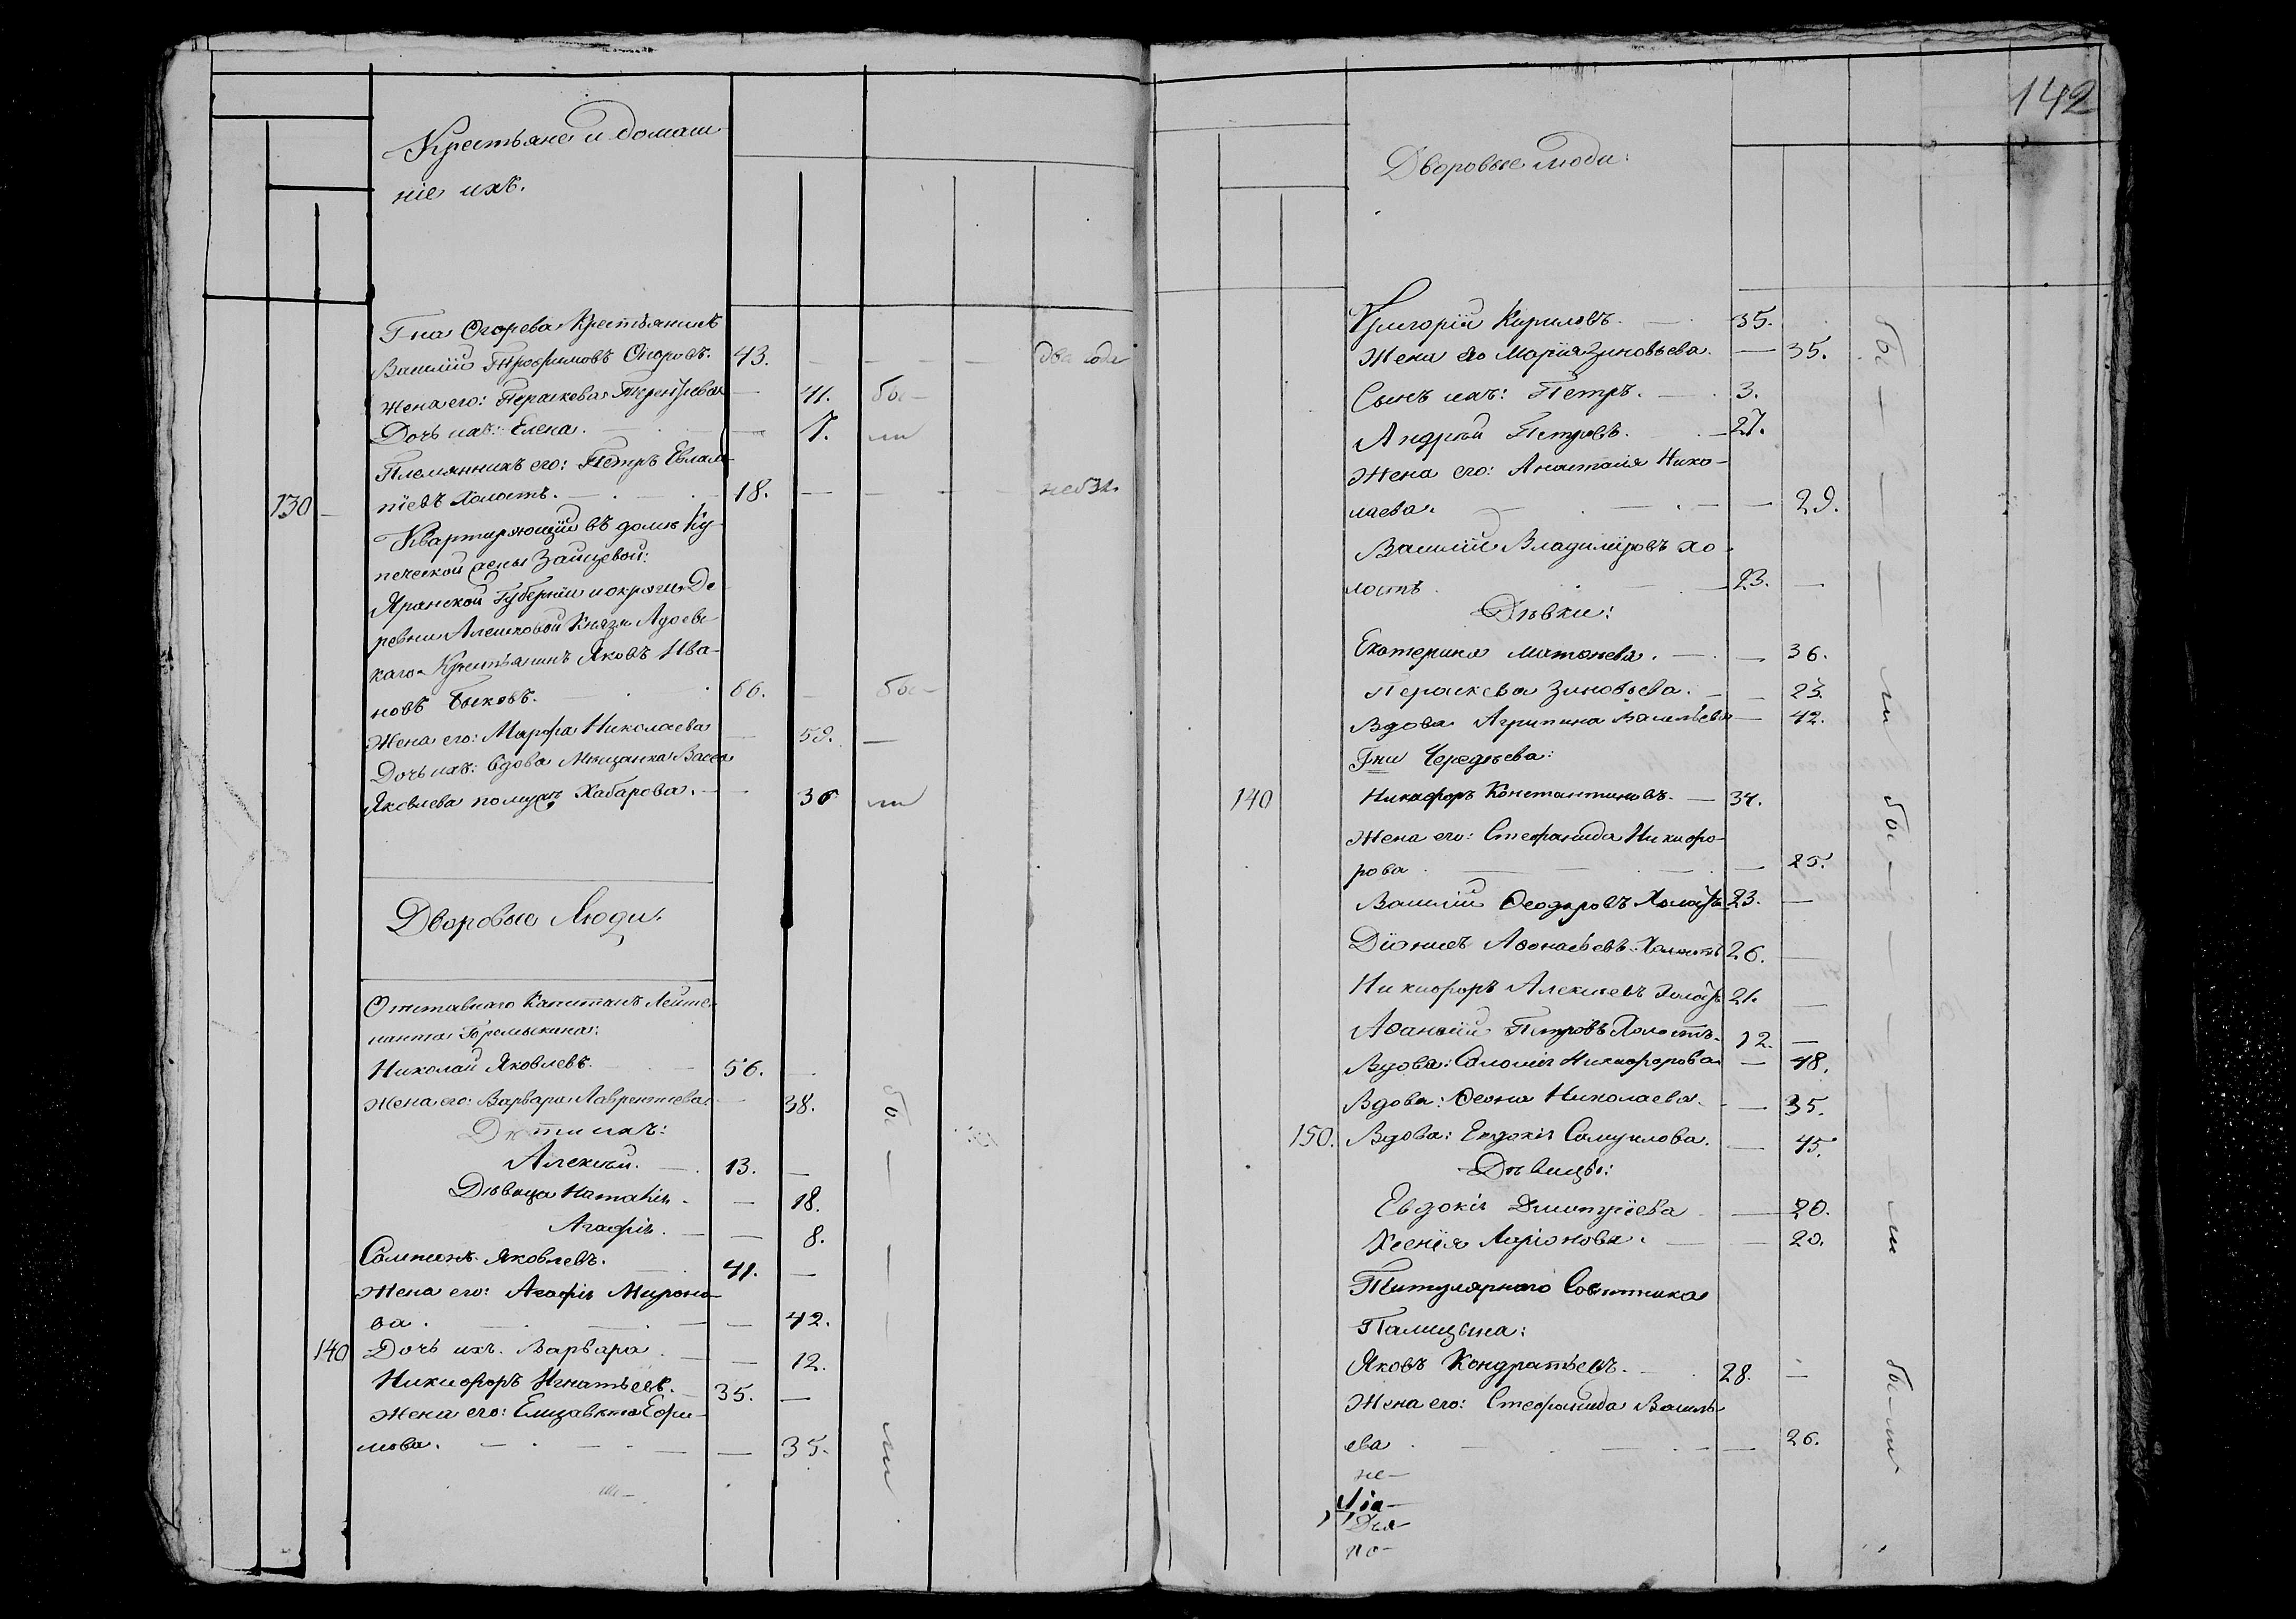 Крестьяне и домаш
ніе ихъ.
Г-на Огорева Крестьянинъ
Василій Трофимовъ 43. два года
жена его: Параскева Терентьева 41. бы-
Дочь ихъ: Елена. 7. ли
Племянникъ его: Петръ Евлам
130 піевъ Холостъ. 18.
Квартирующій въ доме Ку
печеской жены Зайцевой:
Губерніи и округи Де
ревни Алешковой Князя Адоевс
каго Крестьянинъ Яковъ Ива-
новъ Быковъ. 66. бы-
Жена его: Марфа Николаева 59.
Дочь ихъ: вдова Мещанка Васса
Яковлева по мужу Хабарова. 36 ли
Дворовые Люди.
Отставнаго Капитанъ Лейте-
нанта
Николай Яковлевъ. 56.
Жена его: Варвара Лаврентиева 38. бы
Дети ихъ:
Алексей. 13.
Девица Наталія 18.
Агафія. 8.
Яковлевъ. 41.
Жена его: Агафія Мироно
ва. 42.
140 Дочь ихъ Варвара 12.
Никифоръ Игнатьевъ. 35.
Жена его: Елизавета Ефи-
мова. 35. ли
142
Дворовые люди:
Григорій Кириловъ. 35. бы
Жена его Марія Зиновьева. 35.
Сынъ ихъ: Петръ. 3.
Андрей Петровъ. 27.
Жена его: Анастасія Нико-
лаева. 29.
Василій Владиміровъ хо-
лостъ 23.
Девки:
Екатерина Матвеева. 36.
Параскева Зиновьева. 23. ли
Вдова Агрипина Васильева 42.
Г-жи Чередеева:
140 Никифоръ Константиновъ. 34. бы
Жена его: Стефанида Никифо-
рова 25.
Василій Феодоровъ Холостъ 23.
Діонисъ Афонасьевъ Холостъ 26.
Никифоръ Алексеевъ Холостъ 21.
Афанасій Петровъ Холостъ. 12.
Вдова: Соломія Никифорова 48.
Вдова: Николаева. 35.
150. Вдова: Евдокія Самуилова. 45.
Девицы:
Евдокія Димитріева 20. ли
Ксенія Ларіонова. 20.
Титулярнаго Советника
Палицына:
Яковъ Кондратьевъ. 28. бы-ли
Жена его: Стефанида Василь
ева 26.
не-
по-